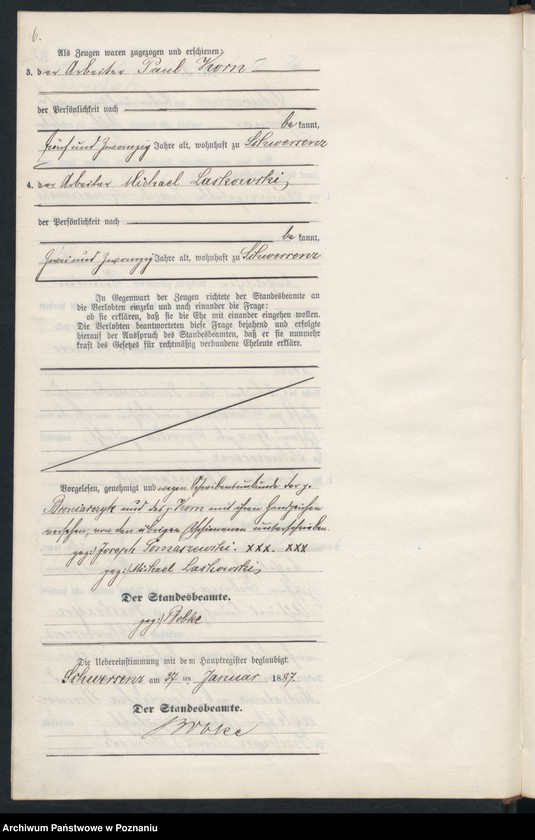 6.
Als Zeugen waren zugezogen und erschienen:
3. der Arbeiter Paul Korn
der Persönlichkeit nach
be kannt,
fünf und zwanzig Jahre alt, wohnhaft zu Schwersenz
4. der Arbeiter Michael Laskowski,
der Persönlichkeit nach
be kannt,
zwei und zwanzig Jahre alt, wohnhaft zu Schwersenz
In Gegenwart der Zeugen richtete der Standesbeamte an
die Verlobten einzeln und nach einander die Frage:
ob sie erklären, daß sie die Ehe mit einander eingehen wollen.
Die Verlobten beantworteten diese Frage bejahend und erfolgte
hierauf der Ausspruch des Standesbeamten, daß er sie nunmehr
kraft des Gesetzes für rechtmäßig verbundene Eheleute erkläre.
Vorgelesen, genehmigt und wegen Schreibensunkunde der p.
Broniarczyk und des p. Korn mit ihren Handzeichen
versehen, von den übrigen Erschienenen unterschrieben.
gez: Joseph Tomaszewski. XXX. XXX
gez: Michael Laskowski,
Der Standesbeamte.
gez: Bobke
Die Uebereinstimmung mit dem Hauptregister beglaubigt
Schwersenz am 27 ten Januar 1887.
Der Standesbeamte.
Bobke
Archiwum Państwowe w Poznaniu